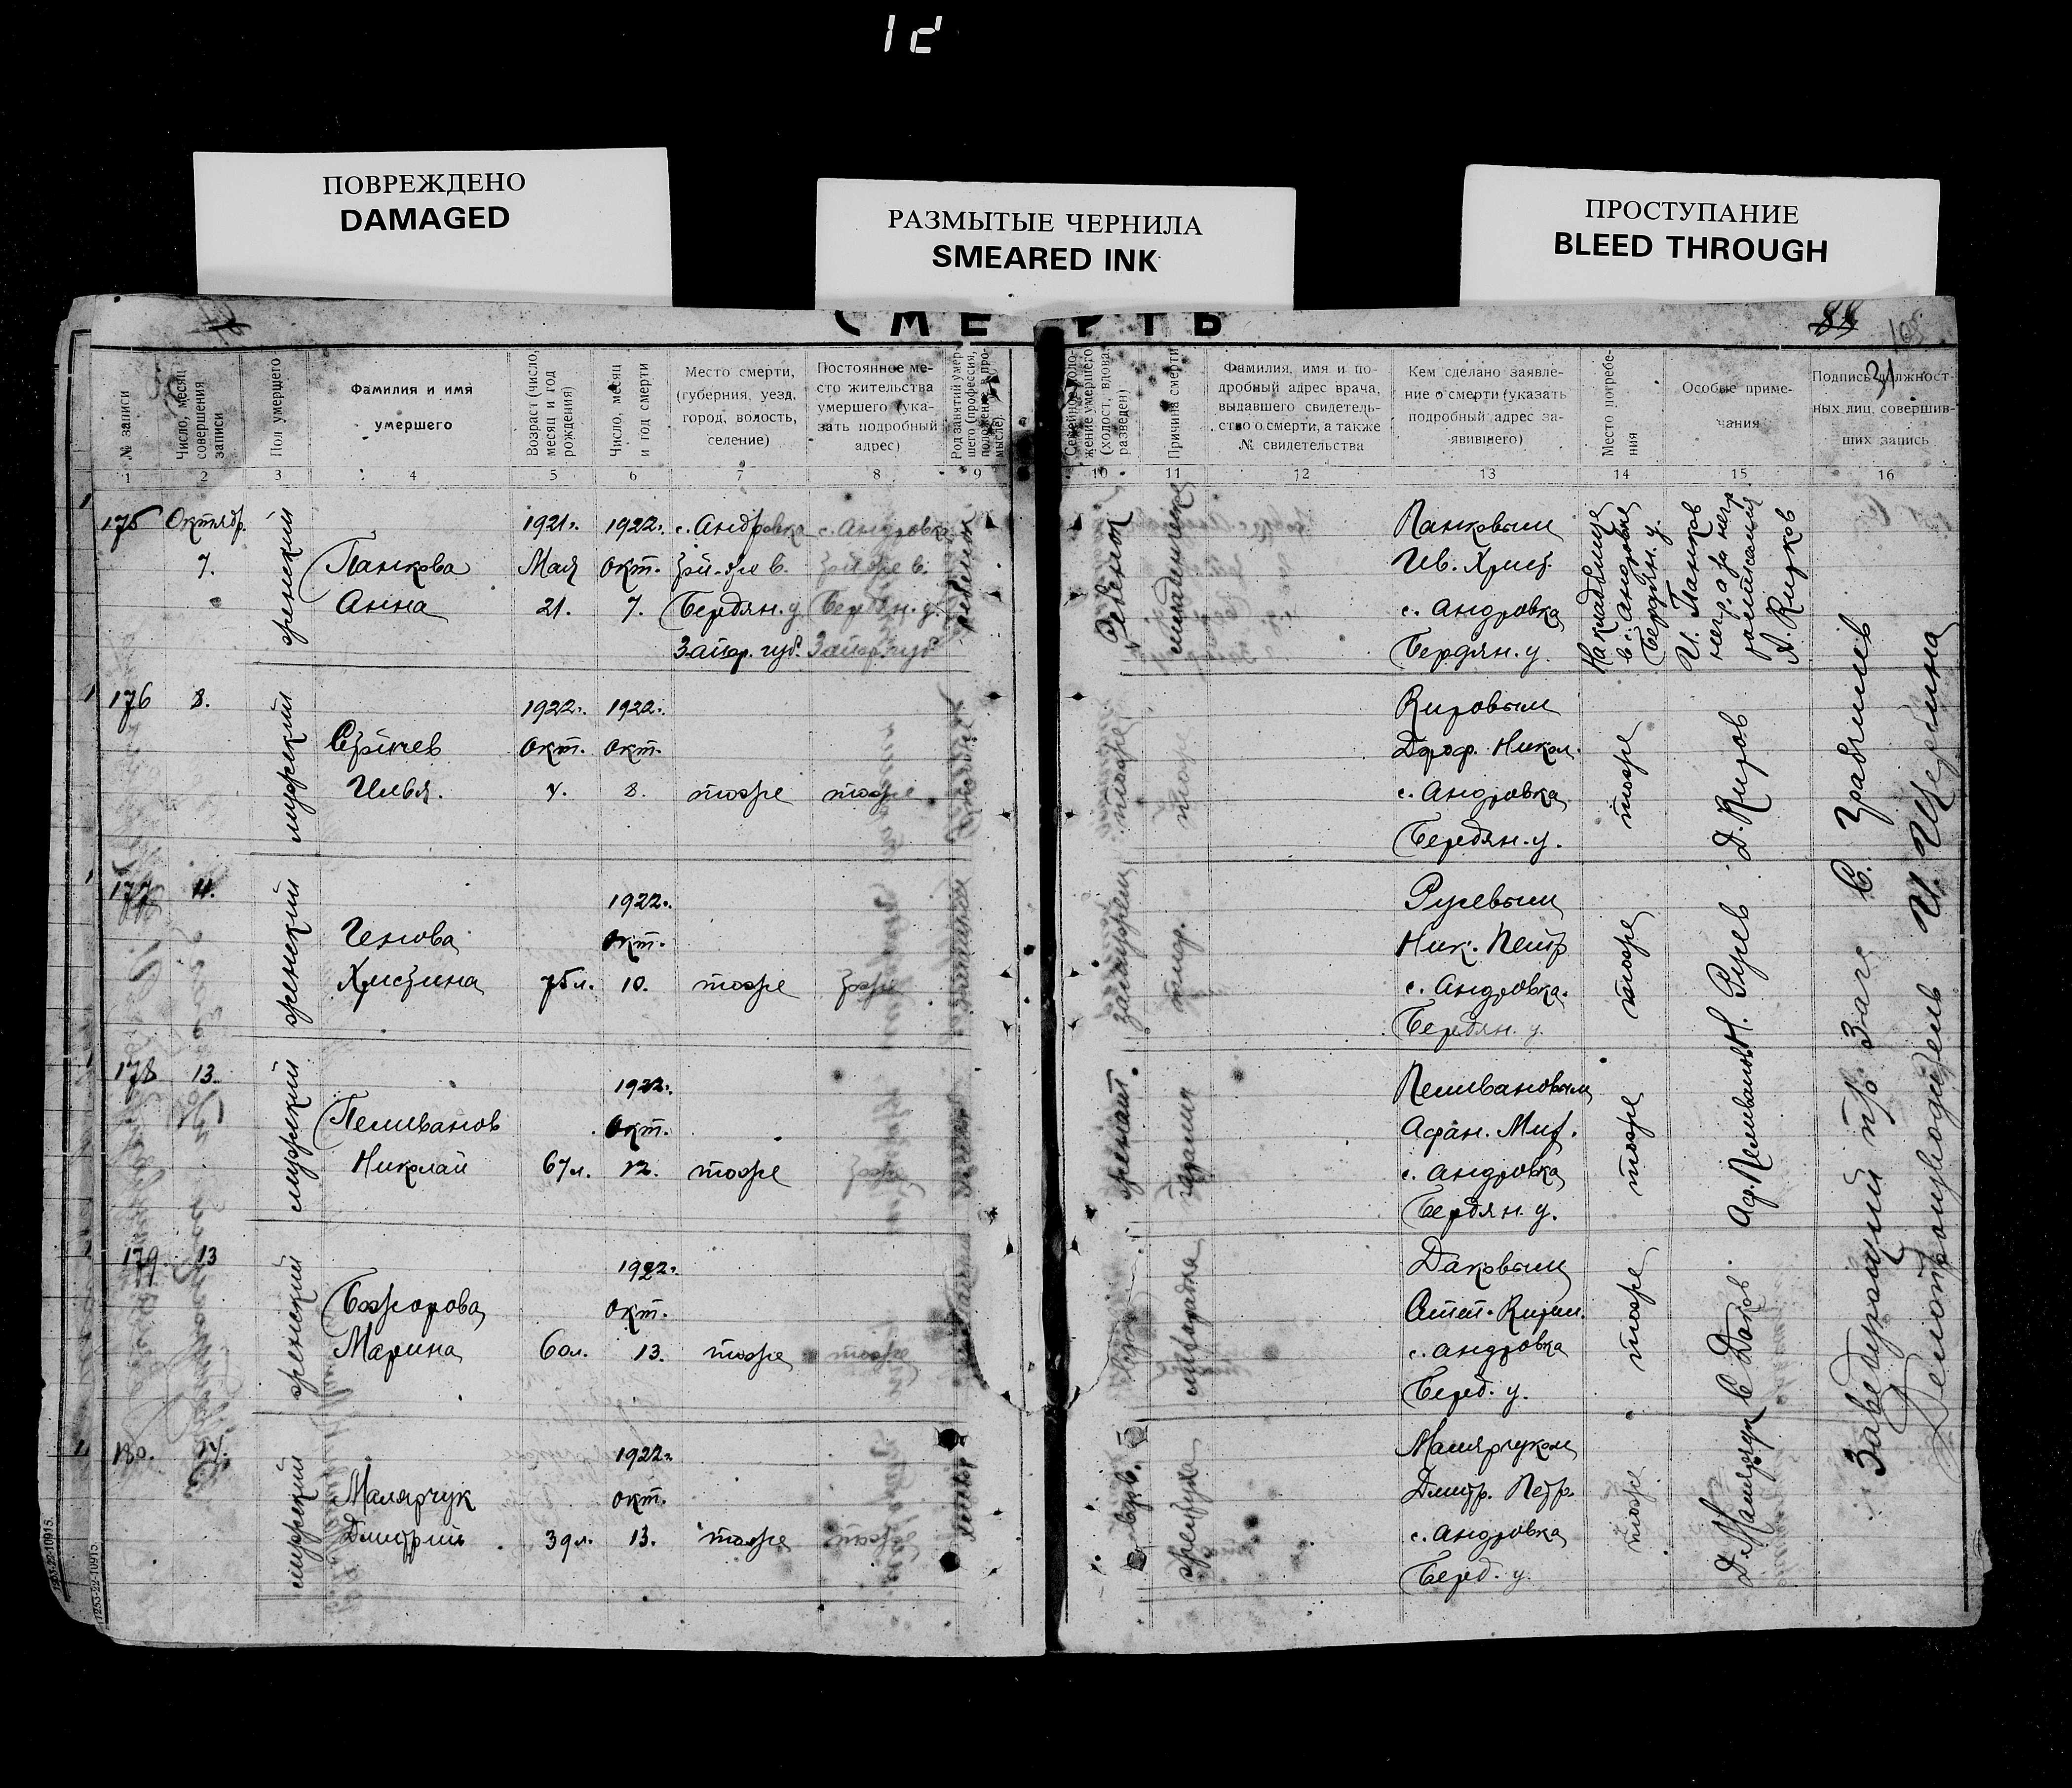 ПОВРЕЖДЕНО
DAMAGED
РАЗМЫТЫЕ ЧЕРНИЛА
SMEARED INK
ПРОСТУПАНИЕ
BLEED THROUGH
СМЕРТЬ
88
31
№ записи
Число, месяц совершения записи
Пол умершего
Фамилия и имя
умершего
Возраст (число, месяц и год рождения)
Число, месяц и год смерти
Место смерти,
(губерния, уезд,
город, волость,
селение)
Постоянное ме-
сто жительства
умершего (ука-
зать подробный
адрес)
Род занятий умер-
шего (профессия,
положение в про-
мысле).
Семейное поло-
жение умершего
(холост, вдова,
разведен)
Причина смерти
Фамилия, имя и по-
дробный адрес врача,
выдавшего свидетель-
ство о смерти, а также
№ свидетельства
Кем сделано заявле-
ние о смерти (указать
подробный адрес за-
явившего)
Место погребе-
ния
Особые приме-
чания
Подпись должност-
ных лиц, совершив-
ших запись
1 2 3 4 5 6 7 8 9 10 11 12 13 14 15 16
175 Октябр.
7.
женский
Панкова
Анна
1921г.
Мая
21.
1922г.
Окт.
7.
с. Андровка
Бердян. у.
Запор. губ.
с. Андровка
Бердян. у.
Запор. губ.
ребенок
Панковым
Ив. Христ.
с. Андровка
Бердян. у.
На кладбище
в с. Андровке
Бердян. у.
И. Панков
негр. а за негр
расписался
А. Киров
176 8.
мужский
Илья.
1922г.
Окт.
1922г.
Окт.
8.
тоже
тоже
тоже
Кировым
Дороф. Никол.
с. Андровка
Бердян. у.
тоже
Д. Киров
177 11.
женский
Генова
Христина
75 л.
1922г.
Окт.
10.
тоже
тоже
замужем
Русевым
Ник. Петр
с. Андровка.
Бердян. у.
тоже
Н. Русев
178 13.
мужский
Пеливанов
Николай
67 л.
1922г.
Окт.
12.
тоже
тоже
женат.
Пеливановым
Афан. Мих.
с. Андровка
Бердян. у.
тоже
Аф. Пеливанов
179. 13
женский
Божорова
Марина
60 л.
1922г.
Окт.
13.
тоже
тоже
Даковым
с. Андровка
Берд. у.
тоже
С Даков
180. 14.
мужский
Малярчук
Дмитрий
39 л.
1922г.
Окт.
13.
тоже
тоже
Малярчуком
Дмитр. Петр.
с. Андровка
Берд. у.
тоже
Д. Малярчук
Заведующий
Делопроизводитель И. Щербина
11253-22-10915.